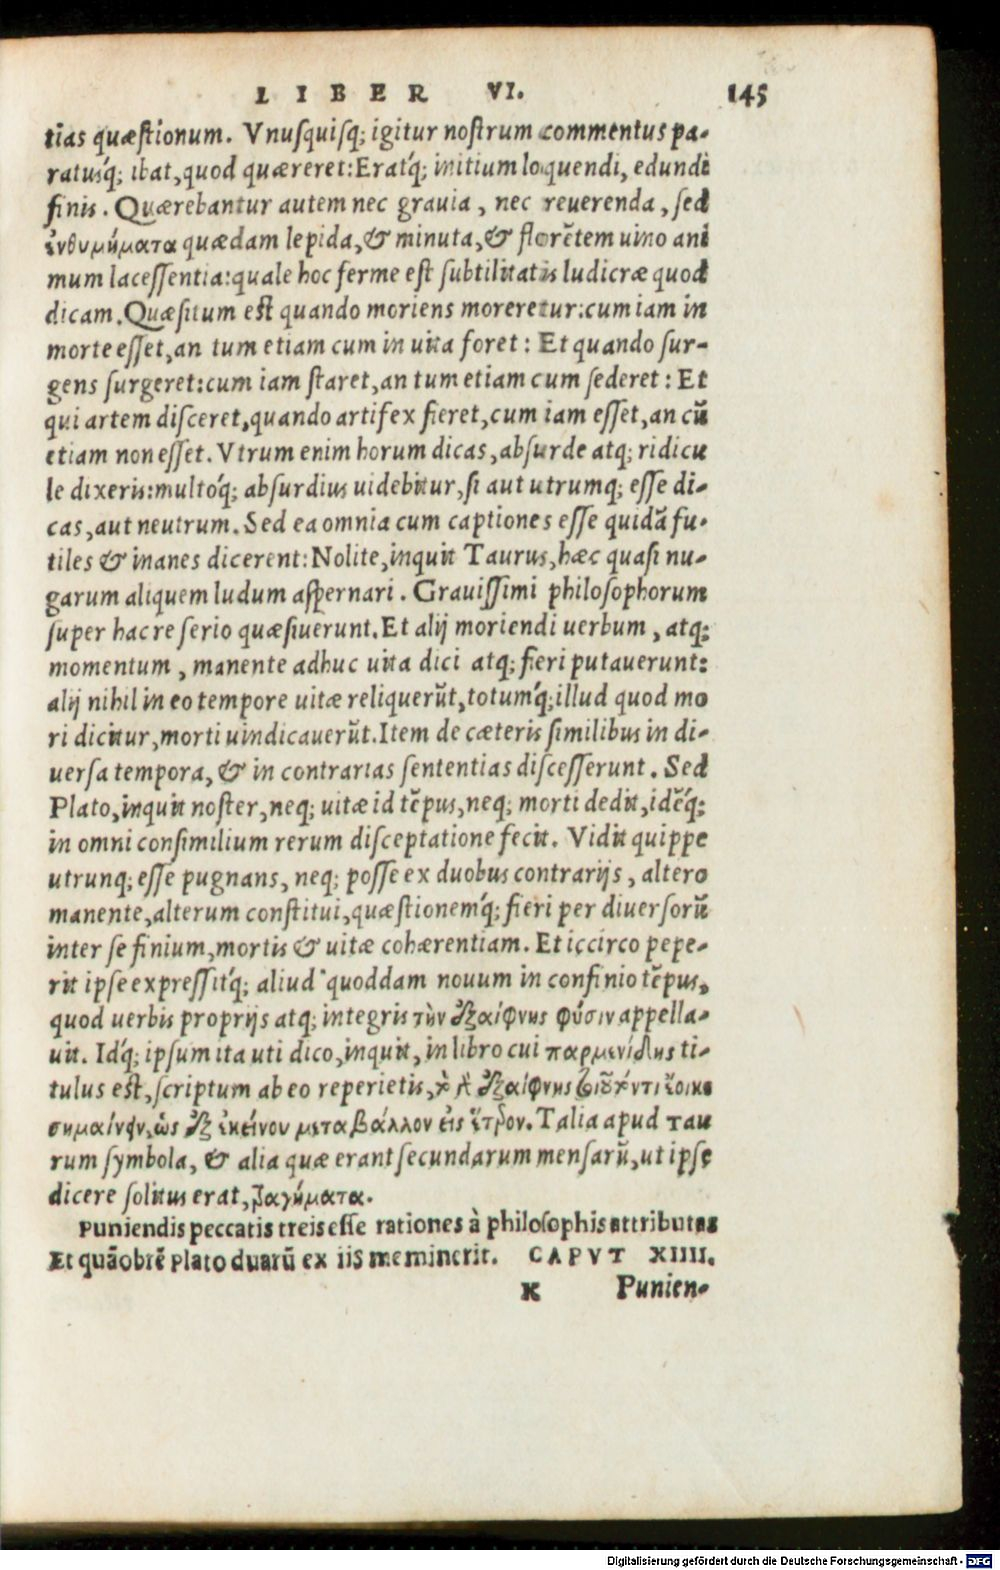 LIBER VI. 145
tias quæstionum. Vnusquisq; igitur nostrum commentus pa-
ratusq́; ibat, quod quæreret: Eratq́; initium loquendi, edundi
finis. Quærebantur autem nec grauia, nec reuerenda, sed
ἐνθυμήματα quædam lepida, & minuta, & florẽtem uino ani
mum lacessentia: quale hoc ferme est subtilitatis ludicræ quod
dicam. Quæsitum est quando moriens moreretur: cum iam in
morte esset, an tum etiam cum in uita foret: Et quando sur-
gens surgeret: cum iam staret, an tum etiam cum sederet: Et
qui artem disceret, quando artifex fieret, cum iam esset, an cũ
etiam non esset. Vtrum enim horum dicas, absurde atq; ridicu
le dixeris: multoq́; absurdius uidebitur, si aut utrumq; esse di-
cas, aut neutrum. Sed ea omnia cum captiones esse quidã fu-
tiles & inanes dicerent: Nolite, inquit Taurus, hæc quasi nu-
garum aliquem ludum aspernari. Grauissimi philosophorum
super hac re serio quæsiuerunt. Et alij moriendi uerbum, atq;
momentum, manente adhuc uita dici atq; fieri putauerunt:
alij nihil in eo tempore uitæ reliquerũt, totumq́; illud quod mo
ri dicitur, morti uindicauerũt. Item de cæteris similibus in di-
uersa tempora, & in contrarias sententias discesserunt. Sed
Plato, inquit noster, neq; uitæ id tẽpus, neq; morti dedit, idẽq́;
in omni consimilium rerum disceptatione fecit. Vidit quippe
utrunq; esse pugnans, neq; posse ex duobus contrarijs, altero
manente, alterum constitui, quæstionemq́; fieri per diuersorũ
inter se finium, mortis & uitæ cohærentiam. Et iccirco pepe-
rit ipse expressitq́; aliud quoddam nouum in confinio tẽpus,
quod uerbis proprijs atq; integris τὴν ἐξαίφνης φύσιν appella-
uit. Idq́; ipsum ita uti dico, inquit, in libro cui παρμενίδης ti-
tulus est, scriptum ab eo reperietis, ἐξαίφνης ἔοικε
σημαίνειν, ὡς ἐξ ἐκείνου μεταβάλλον εἰς ἕτερον. Talia apud Tau
rum symbola, & alia quæ erant secundarum mensarũ, ut ipse
dicere solitus erat, τραγήματα.
Puniendis peccatis treis esse rationes à philosophis attributas
Et quãobrẽ Plato duarũ ex iis meminerit. CAPVT XIIII.
K Punien-
Digitalisierung gefördert durch die Deutsche Forschungsgemeinschaft - DFG